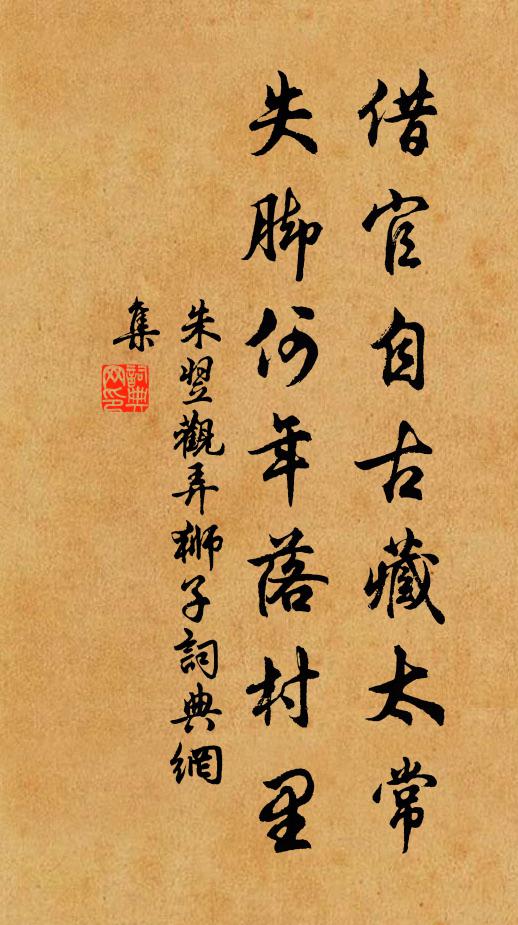 借官自古藏太常
失脚何年落村里
朱翌觀弄獅子詞典網
集
詞典網印